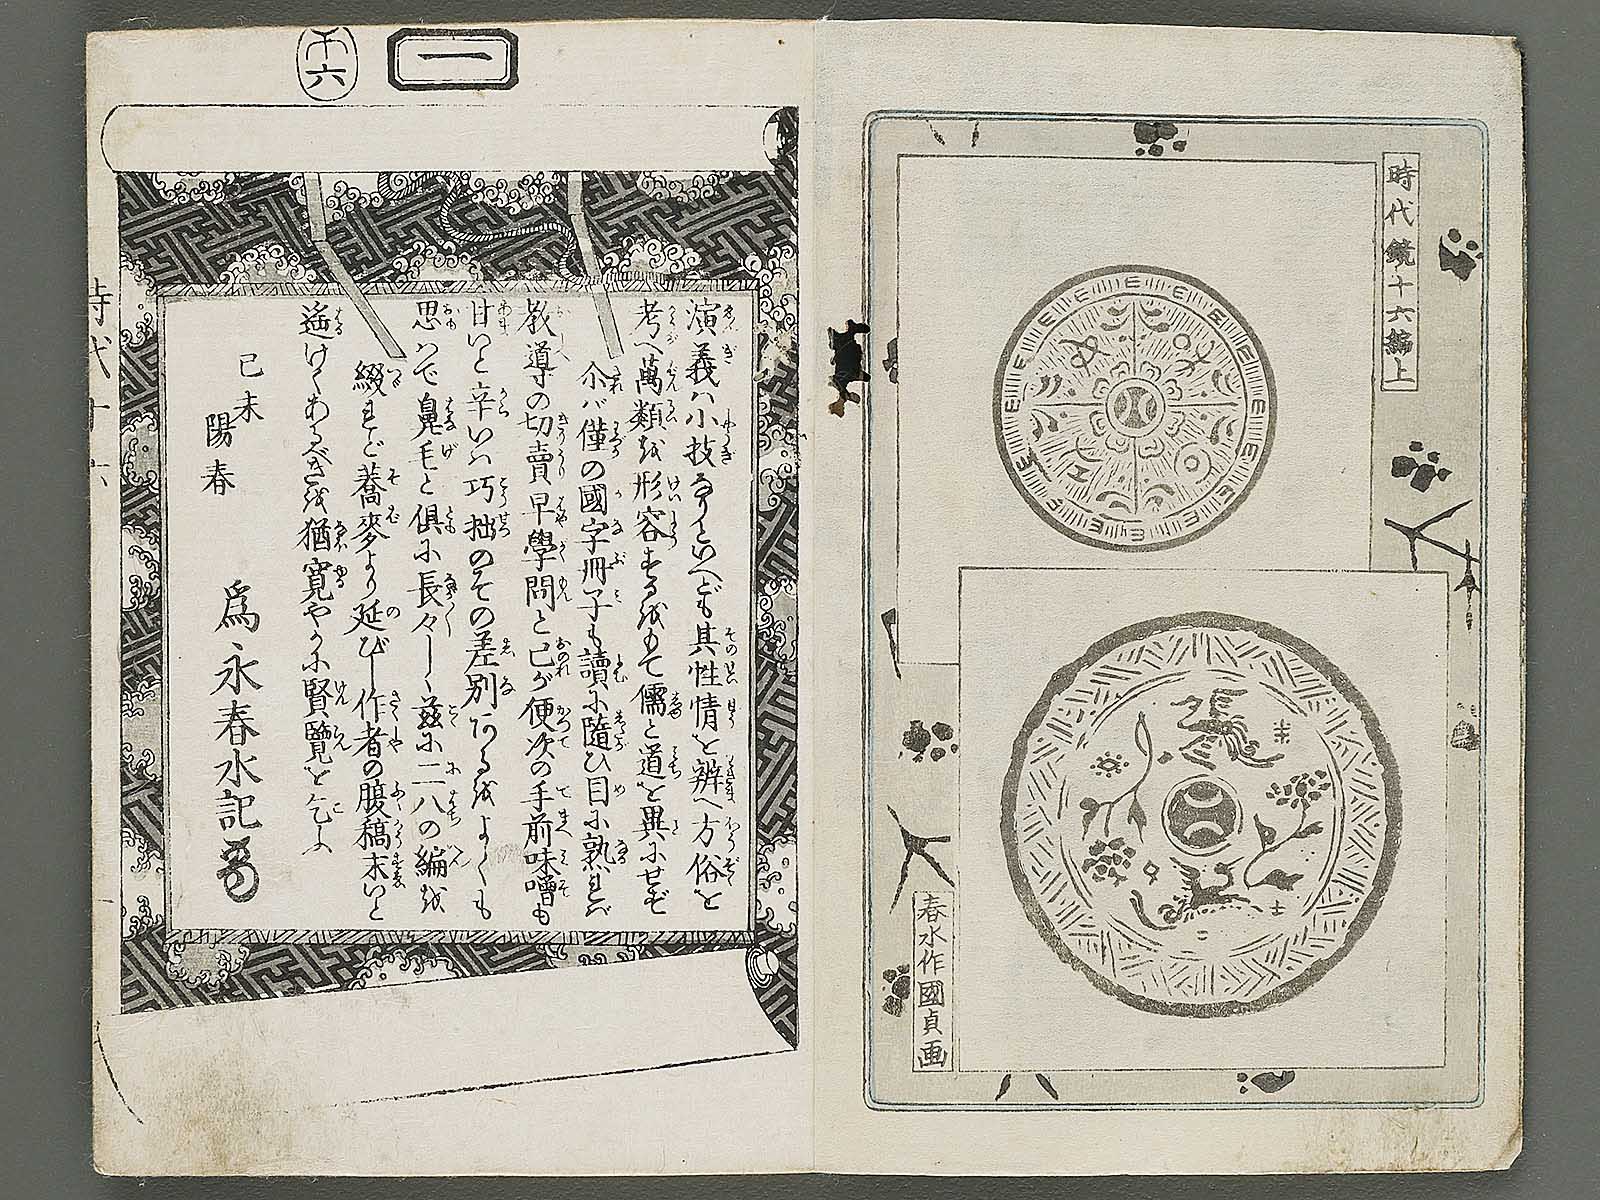 時代鏡十六編上
春水作國貞画
一
十六
演義ハ小技なりといへども其性情を辨へ方俗を
考へ萬類を形容するをもて儒と道を異にせず
尒バ僅の國字冊子も讀に隨ひ目に熟れバ
教導の切賣早學問と己が便次の手前味噌も
甘いと辛いハ巧拙のその差別あるをよくも
思はで鼻毛と俱に長々しく茲に二八の編を
綴れど蕎麥より延びし作者の腹稿末いと
遥けくあるべきを猶寛やかに賢覽を乞ふ
己未
陽春
爲永春水記
時代十六